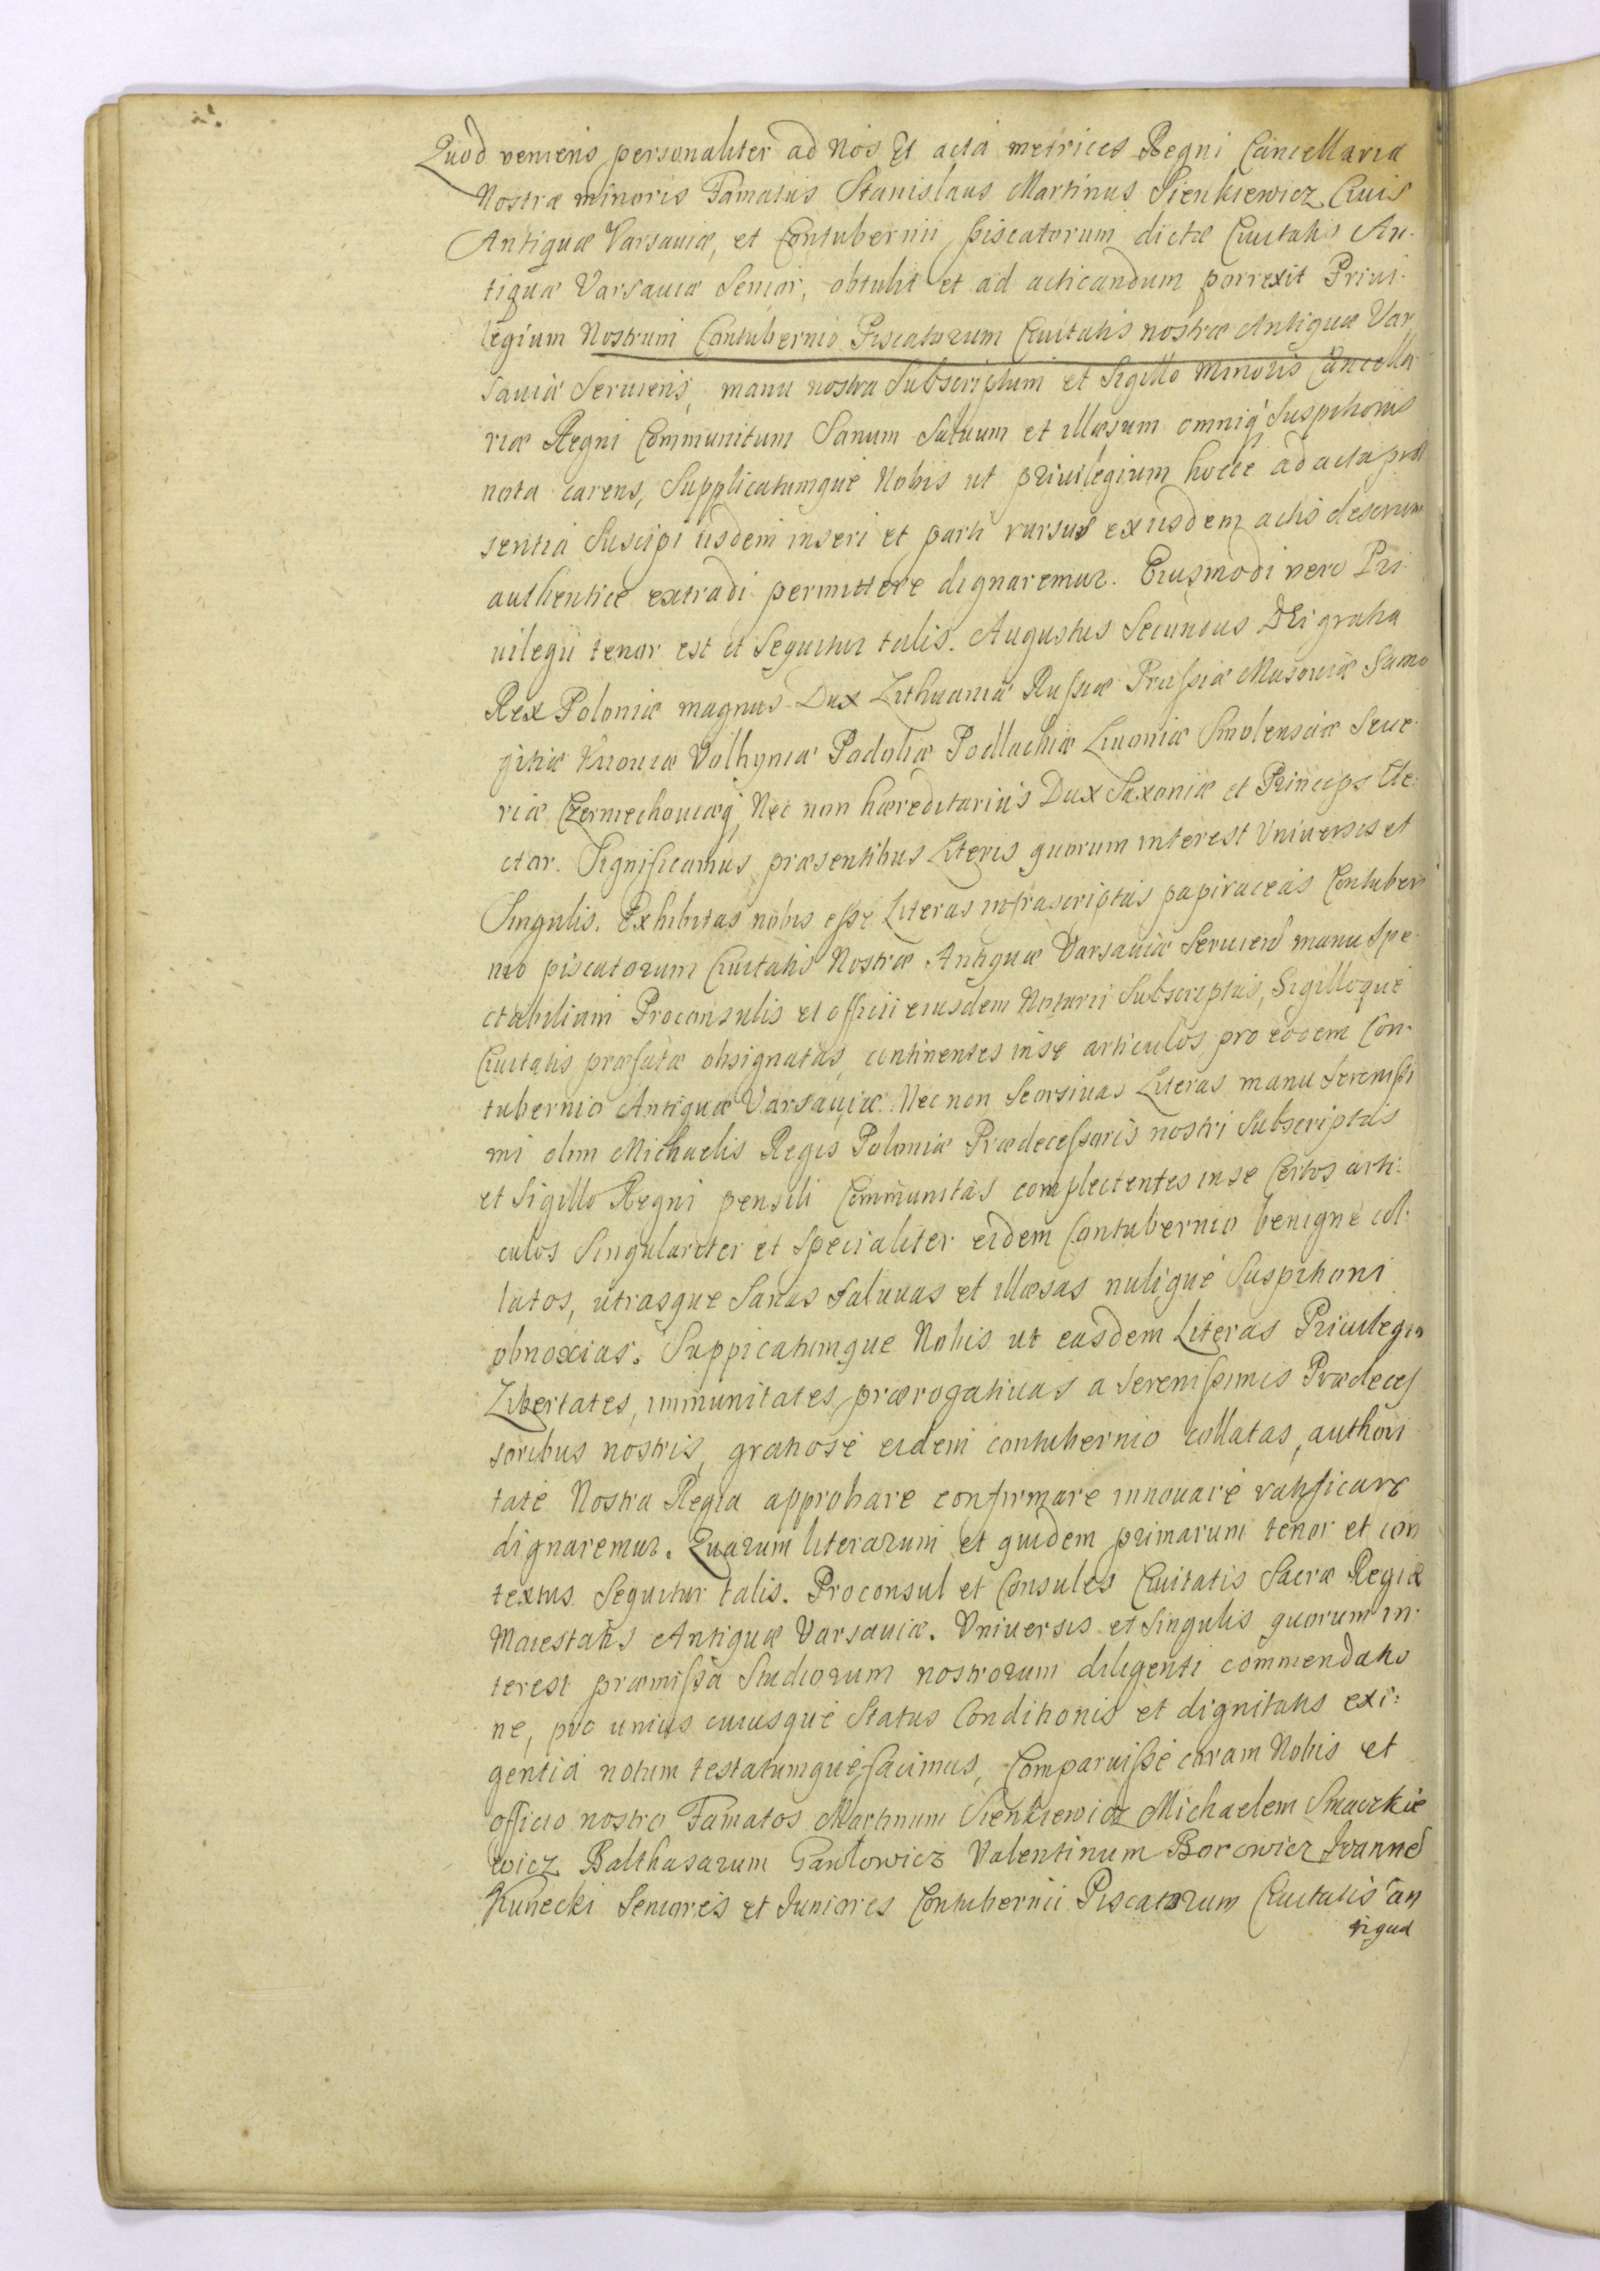 Quod veniens personaliter ad Nos Et acta metrices Regni Cancellariæ
Nostræ minoris Famatus Stanislaus Martinus Sienkiewicz Civis
Antiquæ Varsaviæ, et Contubernii piscatorum dictæ Civitatis An-
tiquæ Varsaviæ Senior, obtulit et ad acticandum porrexit Privi-
legium Nostrum Contubernio Piscatorum Civitatis nostræ Antiquæ Var
saviæ Serviens, manu nostra Subscriptum et Sigillo Minoris Cancella
riæ Regni Communitum Sanum Salvum et illæsum omniq Suspitionis
nota carens, Supplicatumque Nobis ut privilegium hocce ad acta præ
sentia Suscipi iisdem inseri et parti rursus ex iisdem actis descrum
authentice extradi permittere dignaremur. Eiusmodi vero Pri-
vilegii tenor est et Sequitur talis. Augustus Secundus DEi gratia
Rex Poloniæ magnus Dux Lithuaniæ Russiæ Prussiæ Masoviæ Samo
gitiæ Kijoviæ Volhyniæ Podoliæ Podlachiæ Livoniæ Smolensciæ Seve-
riæ Czerniechoviæq, Nec non hæreditarius Dux Saxoniæ et Princeps Ele-
ctor. Significamus præsentibus Literis quorum interest Universis et
Singulis. Exhibitas nobis esse Literas infrascriptas papiraceas Contuber
nio piscatorum Civitatis Nostræ Antiquæ Varsaviæ Servien manu Spe-
ctabilium Proconsulis et officii eiusdem Notarii Subscriptas, Sigilloque
Civitatis præfatæ obsignatas, continentes in se articulos, pro eodem Con-
tubernio Antiquæ Varsaviæ. Nec non Seorsivas Literas manu Serenissi
mi olim Michaelis Regis Poloniæ Prædecessoris nostri Subscriptas
et Sigillo Regni pensili Communitas complectentes in se Certos arti-
culos Singulariter et Specialiter eidem Contubernio benigne col-
latos, utrasque Sanas Salvuas et illæsas nulique Suspitioni
obnoxias. Suppicatumque Nobis ut easdem Literas Privilegia
Libertates, immunitates, prærogativas a Serenissimis Prædeces
soribus nostris, gratiose eidem contubernio collatas, authori
tate Nostra Regia approbare confirmare innovare ratificare
dignaremur. Quarum literarum et quidem primarum tenor et con
textus Sequitur talis. Proconsul et Consules Civitatis Sacræ Regiæ
Maiestatis Antiquæ Varsaviæ. Universis et Singulis quorum in-
terest præmissa Studiorum nostrorum diligenti commendatio
ne, pro unius cuiusque Status Conditionis et dignitatis exi-
gentia notum testatumque facimus, Comparuisse coram Nobis et
officio nostro Famatos Martinum Sienkiewicz Michaelem Smaczkie
wicz Balthasarum Pawłowicz Valentinum Borowicz Ioanne
Kunecki Seniores et Juniores Contubernii Piscatorum Civitatis an
tiquæ